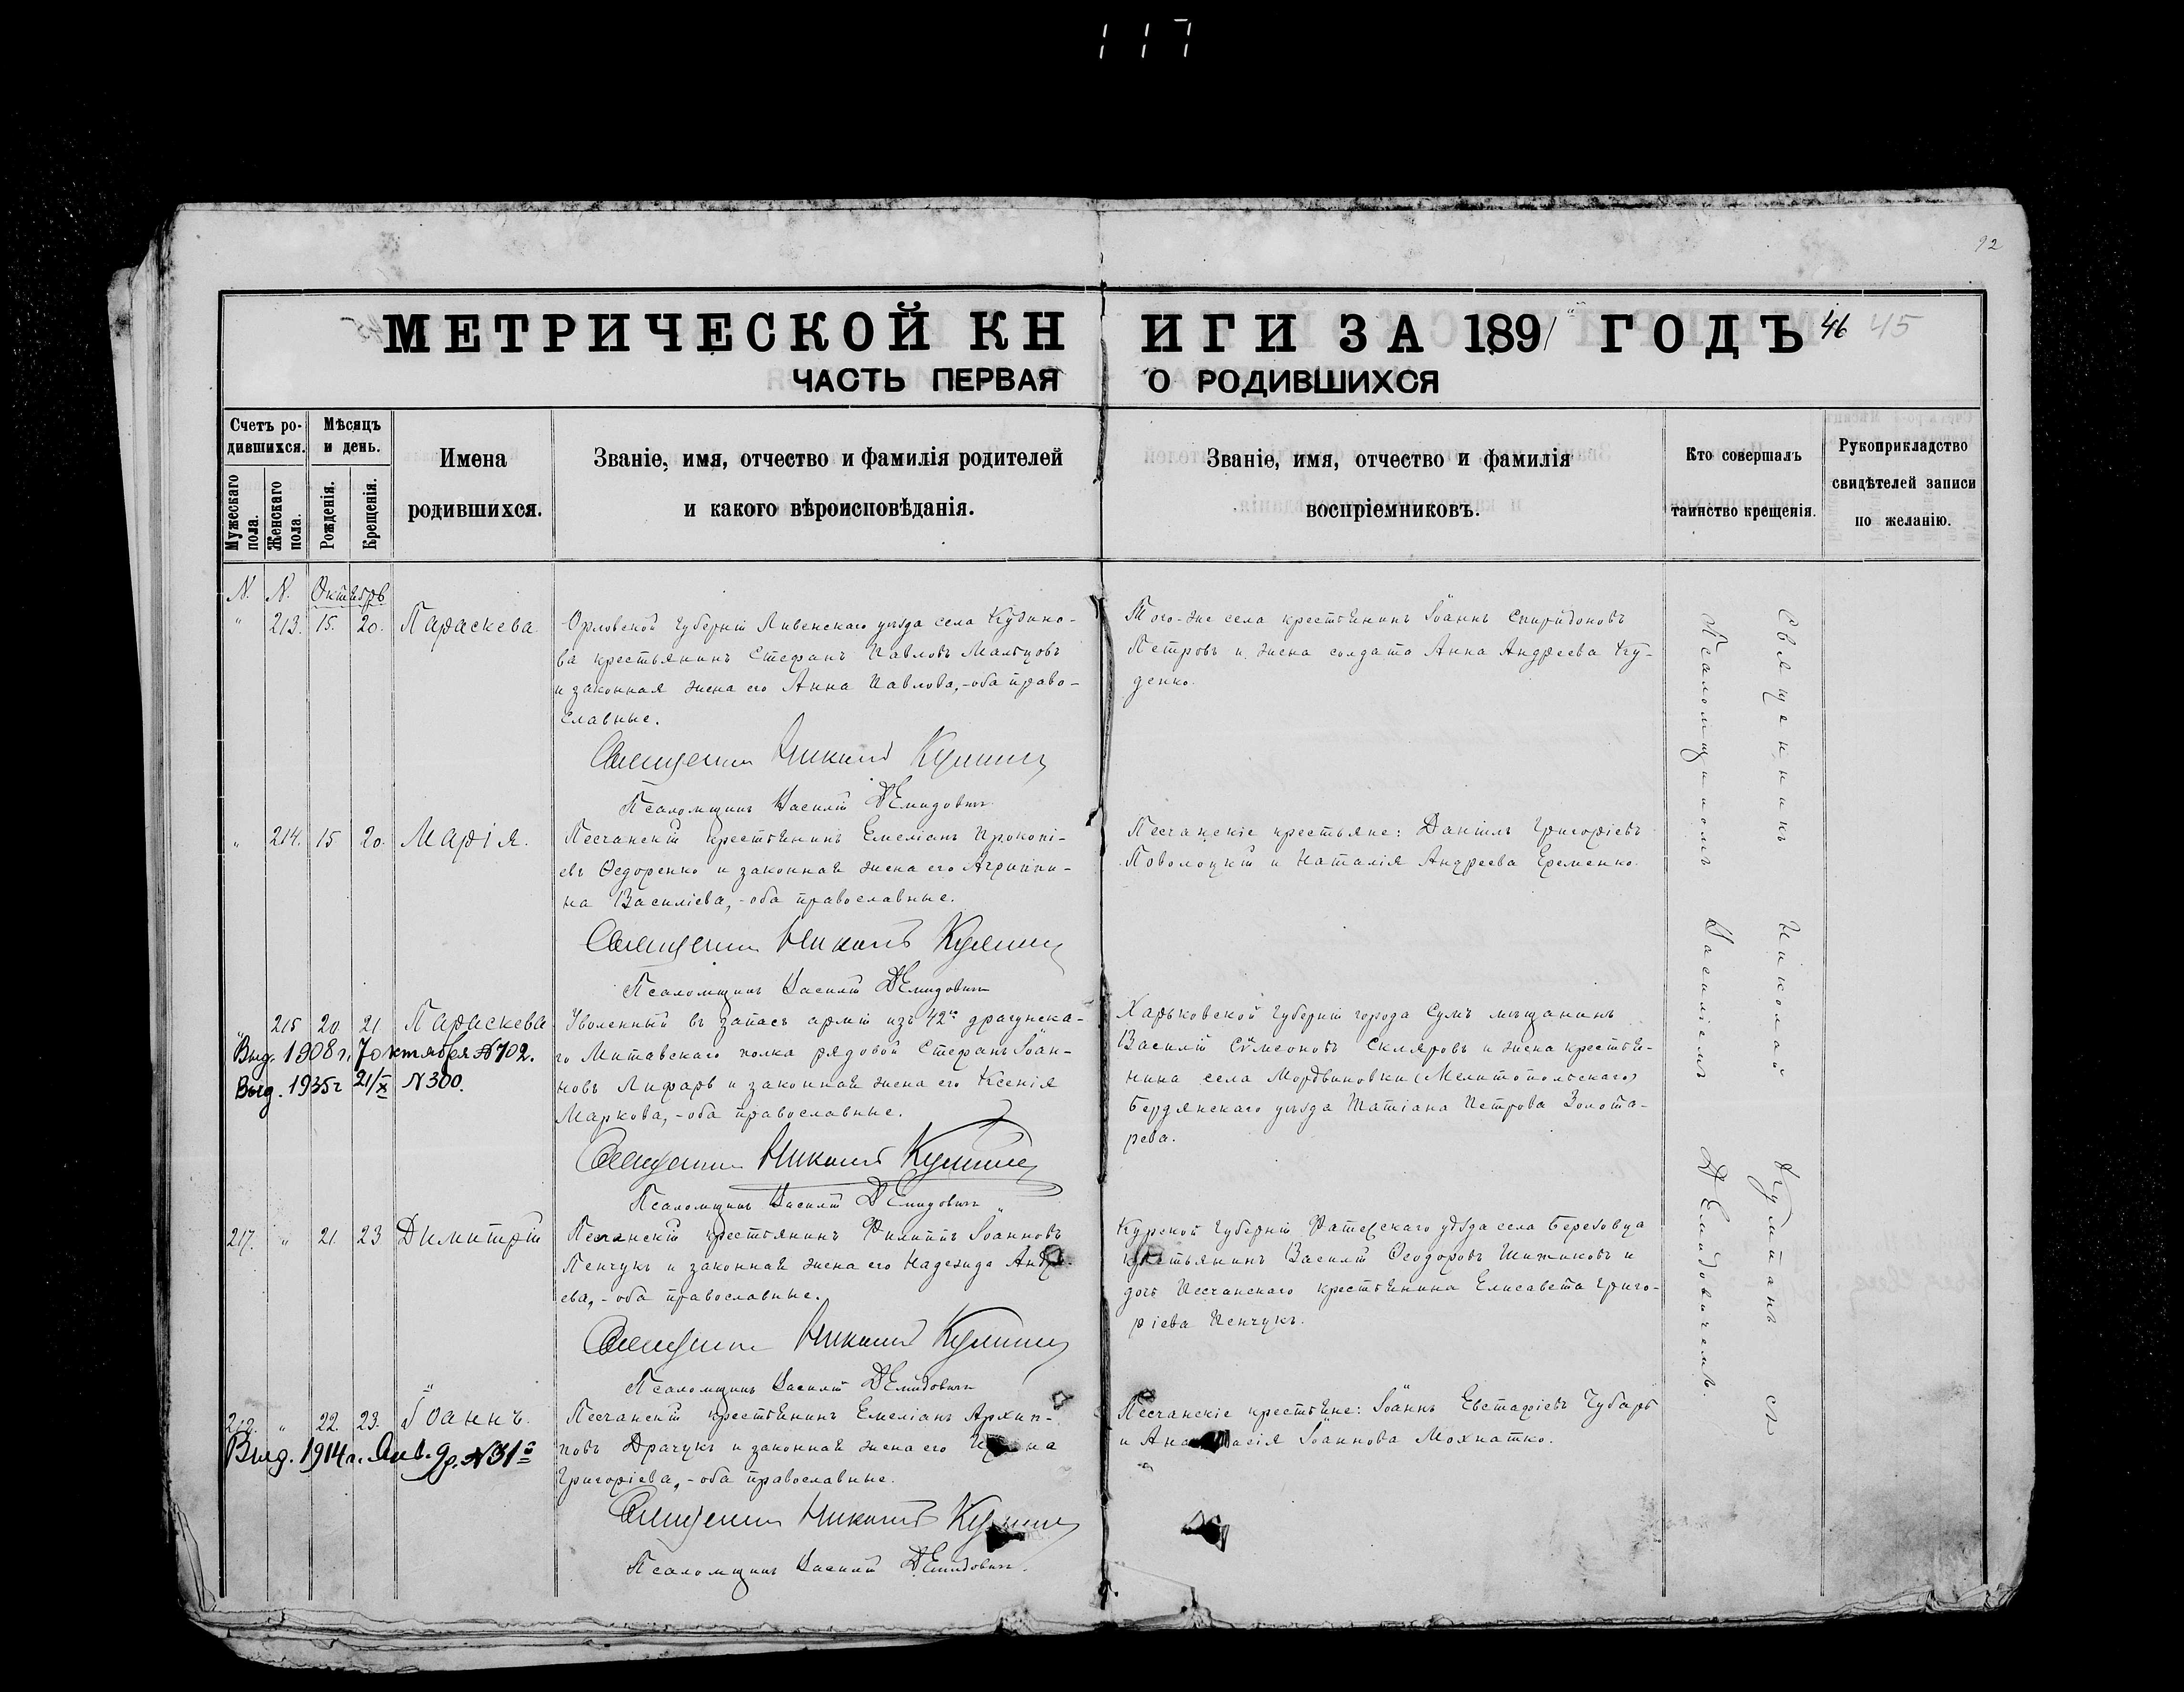 117
92
МЕТРИЧЕСКОЙ КНИГИ ЗА 1891 ГОДЪ 46 45
ЧАСТЬ ПЕРВАЯ О РОДИВШИХСЯ
Счетъ ро-
дившихся.
Мужескаго пола.
Женскаго пола.
Мѣсяцъ
и день.
Рожденія.
Крещенія.
Имена
родившихся.
Званіе, имя, отчество и фамилія родителей
и какого вѣроисповѣданія.
Званіе, имя, отчество и фамилія
воспріемниковъ.
Кто совершалъ
таинство крещенія.
Рукоприкладство
свидѣтелей записи
по желанію.
N. N. Октябрь
" 213. 15. 20. Параскева.
Орловской губерніи Ливенскаго уѣзда села Кудино-
ва крестьянинъ Стефанъ Павловъ Мальцовъ
и законная жена его Анна Павлова,-оба право-
славные.
Священникъ Николай
Псаломщикъ Василій Демидовичъ
Того-же села крестьянинъ Іоаннъ Спиридоновъ
Петровъ и жена солдата Анна Андреева Ку-
денко.
" 214. 15 20. Марія.
Песчанскій крестьянинъ Емеліанъ Прокопі-
евъ Ѳедоренко и законная жена его Агриппи-
на Василіева,-оба православные.
Священникъ Николай
Псаломщикъ Василій Демидовичъ
Песчанскіе крестьяне: Даніилъ Григоріевъ
Поволоцкій и Наталія Андреева Еременко.
" 215 20 21 Параскева
Выд. 1908 г. 7 октября N 702.
Выд. 1935 г 21/X N 300.
Уволенный въ запасъ арміи изъ 42го драгунска-
го Митавскаго полка рядовой Стефанъ Іоан-
новъ Лифарь и законная жена его Ксенія
Маркова,-оба православные.
Священникъ Николай
Псаломщикъ Василій Демидовичъ
Харьковской губерніи города Сумъ мѣщанинъ
Василій Сѵмеоновъ Скляровъ и жена крестья-
нина села Мордвиновки (Мелитопольскаго)
Бердянскаго уѣзда Татіана Петрова Золота-
рева.
217. " 21. 23 Димитрій
Песчанскій крестьянинъ Филиппъ Іоанновъ
Пенчукъ и законная жена его Надежда Андре-
ева,-оба православные.
Священникъ Николай
Псаломщикъ Василій Демидовичъ
Курской губерніи уѣзда села Березовца
крестьянинъ Василій Ѳеодоровъ и
дочь Песчанскаго крестьянина Елисавета Григо-
ріева Пенчукъ.
" 22. 23. Іоаннъ.
Выд. 1914 г. Янв. 9 д. N 31
Песчанскій крестьянинъ Емеліанъ Архип-
повъ Драчукъ и законная жена его
Григоріева,-оба православные.
Священникъ Николай
Псаломщикъ Василій Демидовичъ.
Песчанскіе крестьяне: Іоаннъ Евстафіевъ Чубарь
и Анастасія Іоаннова Мохнатко.
Священникъ Николай съ
Псаломщикомъ Василіемъ Демидовичемъ.